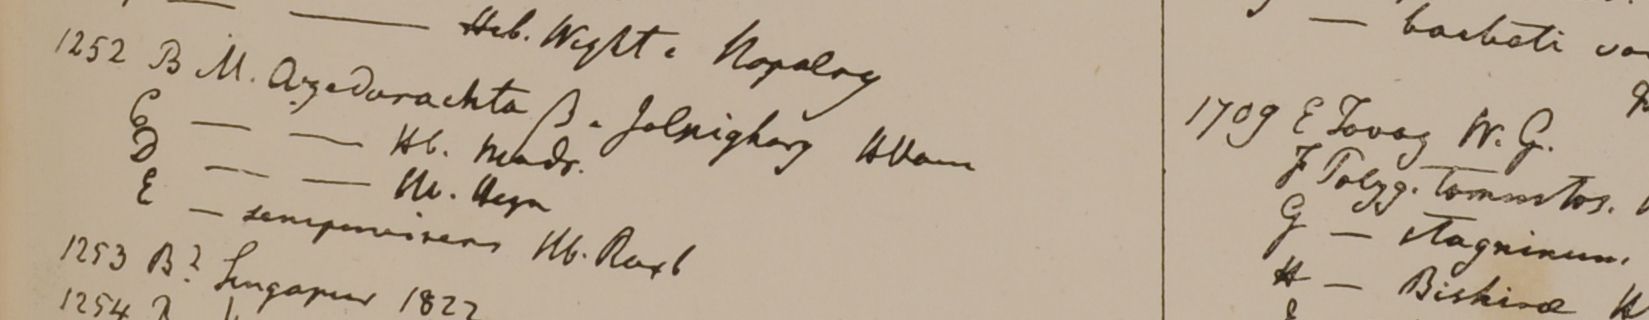 — — Heb. Wight. Nopalry
1252 B M. Azedarachta β. Jolpighory HHam
C — — Hb. Madr.
D — — Hb. Heyn
E — sempervirens Hb. Roxb
1253 B? Singapur 1822
1254 B
— barbati va
1709 E Tovag W. G.
F Polyg. tomentos.
G — stagninum.
H — Biskina H